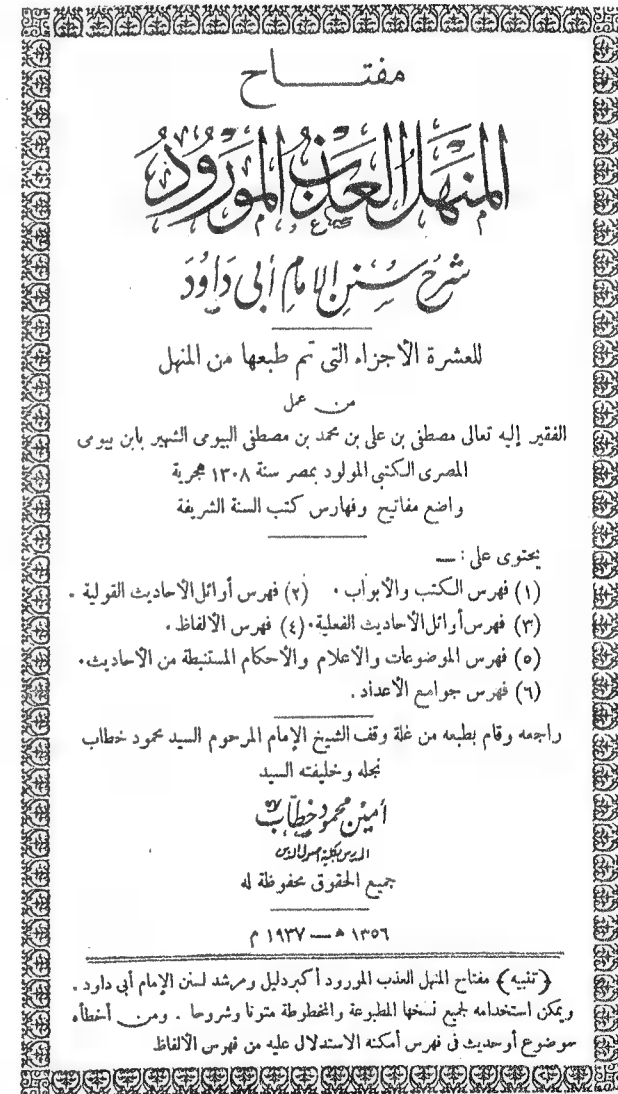 مفتـــــاح
المَنهَلُ العَذبُ المَورُودُ
شَرْحُ سُنَنِ الإمَامِ أبى دَاوُدَ
للعشرة الأجزاء التى تم طبعها من المنهل
من عمل
الفقير إليه تعالى مصطفى بن على بن محمد بن مصطفى البيومى الشهير بابن بيومى
المصرى الكتبى المولود بمصر سنة ١٣٠٨ هجرية
واضع مفاتيح وفهارس كتب السنة الشريفة
يحتوى على : —
(١) فهرس الكتب والأبواب . (٢) فهرس أوائل الأحاديث القولية .
(٣) فهرس أوائل الأحاديث الفعلية . (٤) فهرس الألفاظ .
(٥) فهرس الموضوعات والأعلام والأحكام المستنبطة من الأحاديث .
(٦) فهرس جوامع الأعداد .
راجعه وقام بطبعه من غلة وقف الشيخ الإمام المرحوم السيد محمود خطاب
نجله وخليفته السيد
أمين محمود خطّاب
المدرس بكلية أصول الدين
جميع الحقوق محفوظة له
١٣٥٦ ه — ١٩٣٧ م
﴿تنبيه﴾ مفتاح المنهل العذب المورود أكبر دليل ومرشد لسنن الإمام أبى داود .
ويمكن استخدامه لجميع نسخها المطبوعة والمخطوطة متونا وشروحا . ومن أخطأه
موضوع أو حديث فى فهرس أمكنه الاستدلال عليه من فهرس الألفاظ